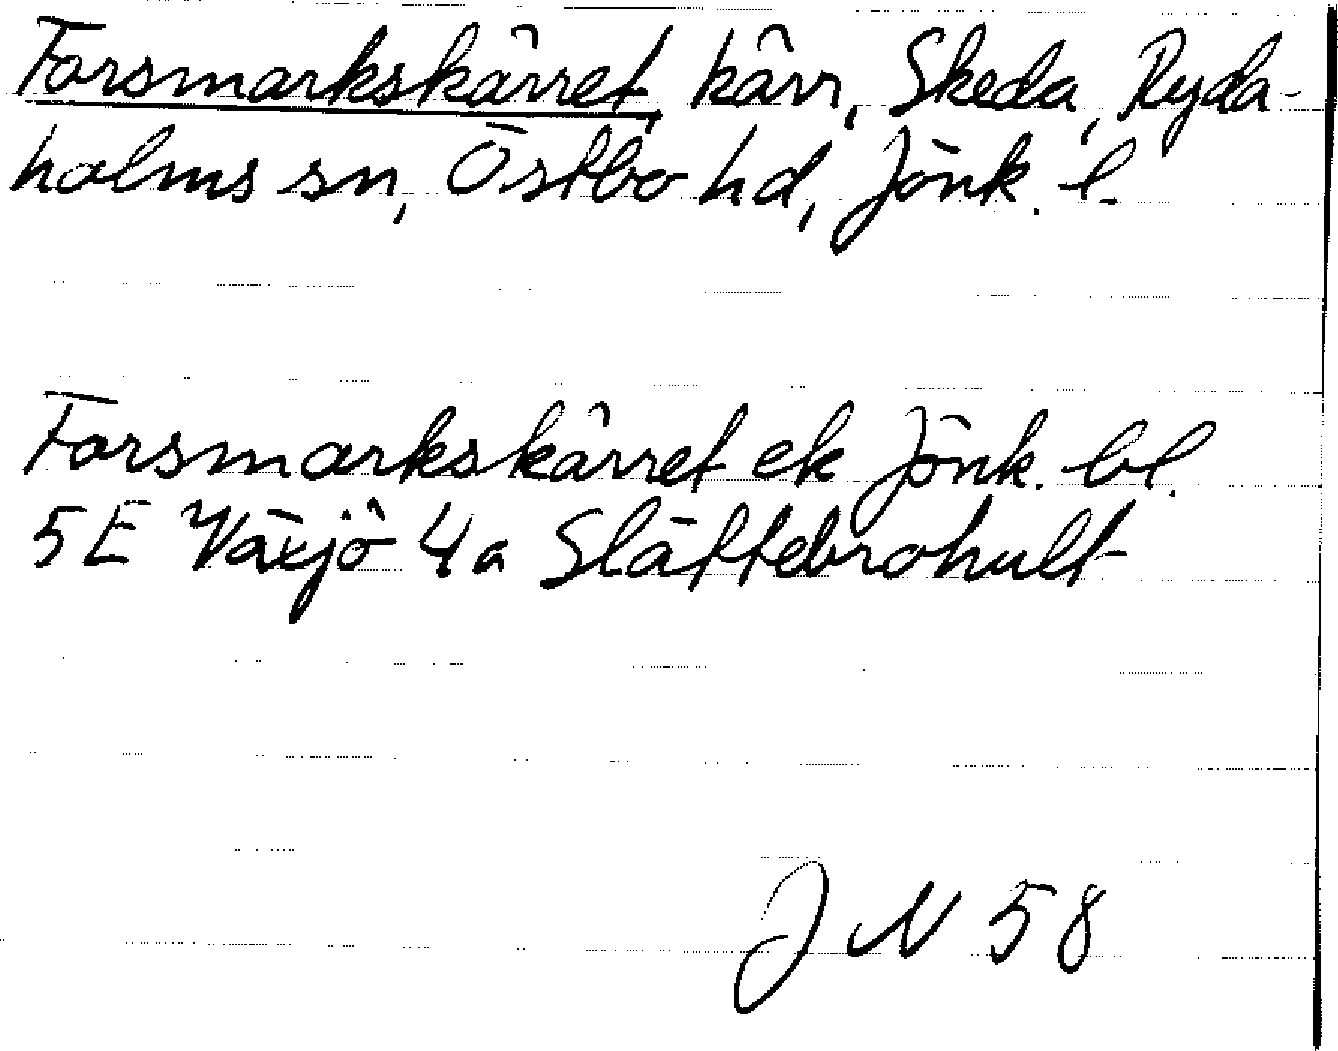 Forsmarkskärret, kärr, Skeda, Ryda-
holms sn, Östbo hd, Jönk. l.
Forsmarkskärret ek Jönk. bl.
5E Växjö 4a Slättebrohult
JN 58